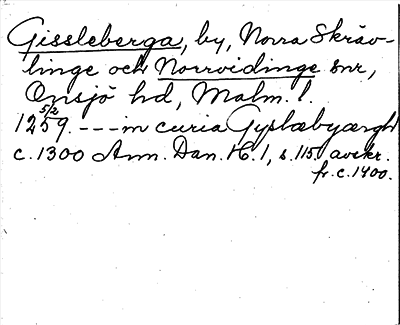 Gissleberga, by, Norra Skräv-
linge och Norrvidinge snr,
Onsjö hd, Malm. l.
5/2
1259. --- in curia Gyslæbyærgh
c. 1300 Ann. Dan. H. 1, s. 115 avskr.
fr. c. 1400.